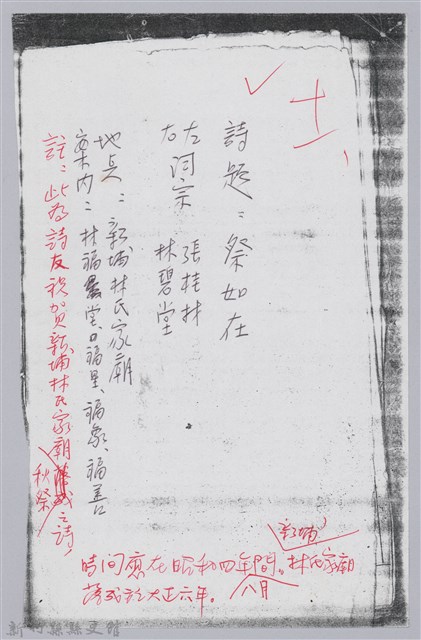 十一、
詩題：祭如在
左詞宗 張桂林
右 林碧堂
地点：新埔林氏家廟
案內：林福堂、福星、福象、福善
註：此為詩友祝賀新埔林氏家廟秋祭之詩，
時间應在昭和四年八月間。新埔林氏家廟
落成於大正六年。
新竹縣縣史館